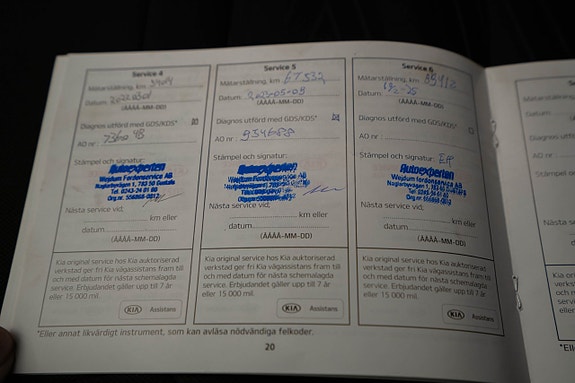 Service 4
Mätarställning, km
Datum: 20220301
(ÅÅÅÅ-MM-DD)
Diagnos utförd med GDS/KDS*
AO nr:
Stämpel och signatur:
Autoexperten
Wedjum Fordonservice AB
Naglarbyvägen 1, 783 50 Gustafs
Tel. 0243-24 01 88
Nästa service vid;
km eller
datum
(ÅÅÅÅ-MM-DD)
Kia original service hos Kia auktoriserad
verkstad ger fri Kia vägassistans fram till
och med datum för nästa schemalagda
service. Erbjudandet gäller upp till 7 år
eller 15 000 mil.
KIA Assistans
Service 5
Mätarställning, km 67532
Datum: 2023-05-08
(ÅÅÅÅ-MM-DD)
Diagnos utförd med GDS/KDS*
AO nr:
Stämpel och signatur:
Autoexperten
Nästa service vid;
km eller
datum
(ÅÅÅÅ-MM-DD)
Kia original service hos Kia auktoriserad
verkstad ger fri Kia vägassistans fram till
och med datum för nästa schemalagda
service. Erbjudandet gäller upp till 7 år
eller 15 000 mil.
KIA Assistans
Service 6
Mätarställning, km
Datum:
(ÅÅÅÅ-MM-DD)
Diagnos utförd med GDS/KDS*
AO nr:
Stämpel och signatur:
Autoexperten
Wedjum Fordonservice AB
Naglarbyvägen 1, 783 50 Gustafs
Nästa service vid;
km eller
datum
(ÅÅÅÅ-MM-DD)
Kia original service hos Kia auktoriserad
verkstad ger fri Kia vägassistans fram till
och med datum för nästa schemalagda
service. Erbjudandet gäller upp till 7 år
eller 15 000 mil.
KIA Assistans
*Eller annat likvärdigt instrument, som kan avläsa nödvändiga felkoder.
20